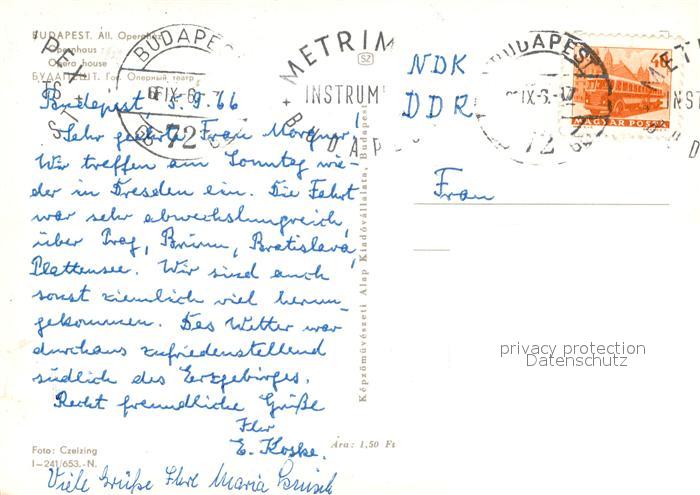 BUDAPEST. Áll. Operaház
Opernhaus
Opera house
БУДАПЕШТ. Гос. Оперный театр
Budapest, 5.9.66
Sehr geehrte Frau
Wir treffen am Sonntag wie-
der in Dresden ein. Die Fahrt
war sehr abwechslungsreich,
über Prag, Brünn, Bratislava,
Plattensee. Wir sind auch
sonst ziemlich viel herum-
gekommen. Das Wetter war
durchaus zufriedenstellend
südlich des Erzgebirges.
Recht freundliche Grüße
Ihr
E. Koske.
Viele Grüße Ihre Maria
Foto: Czelzing
I-241/653.-N.
Ára: 1,50 Ft
Képzőművészeti Alap Kiadóvállalata, Budapest
BUDAPEST
72
METRIM
INSTRUM
NDK
DDR
Frau
BUDAPEST
72
MAGYAR POSTA
privacy protection
Datenschutz